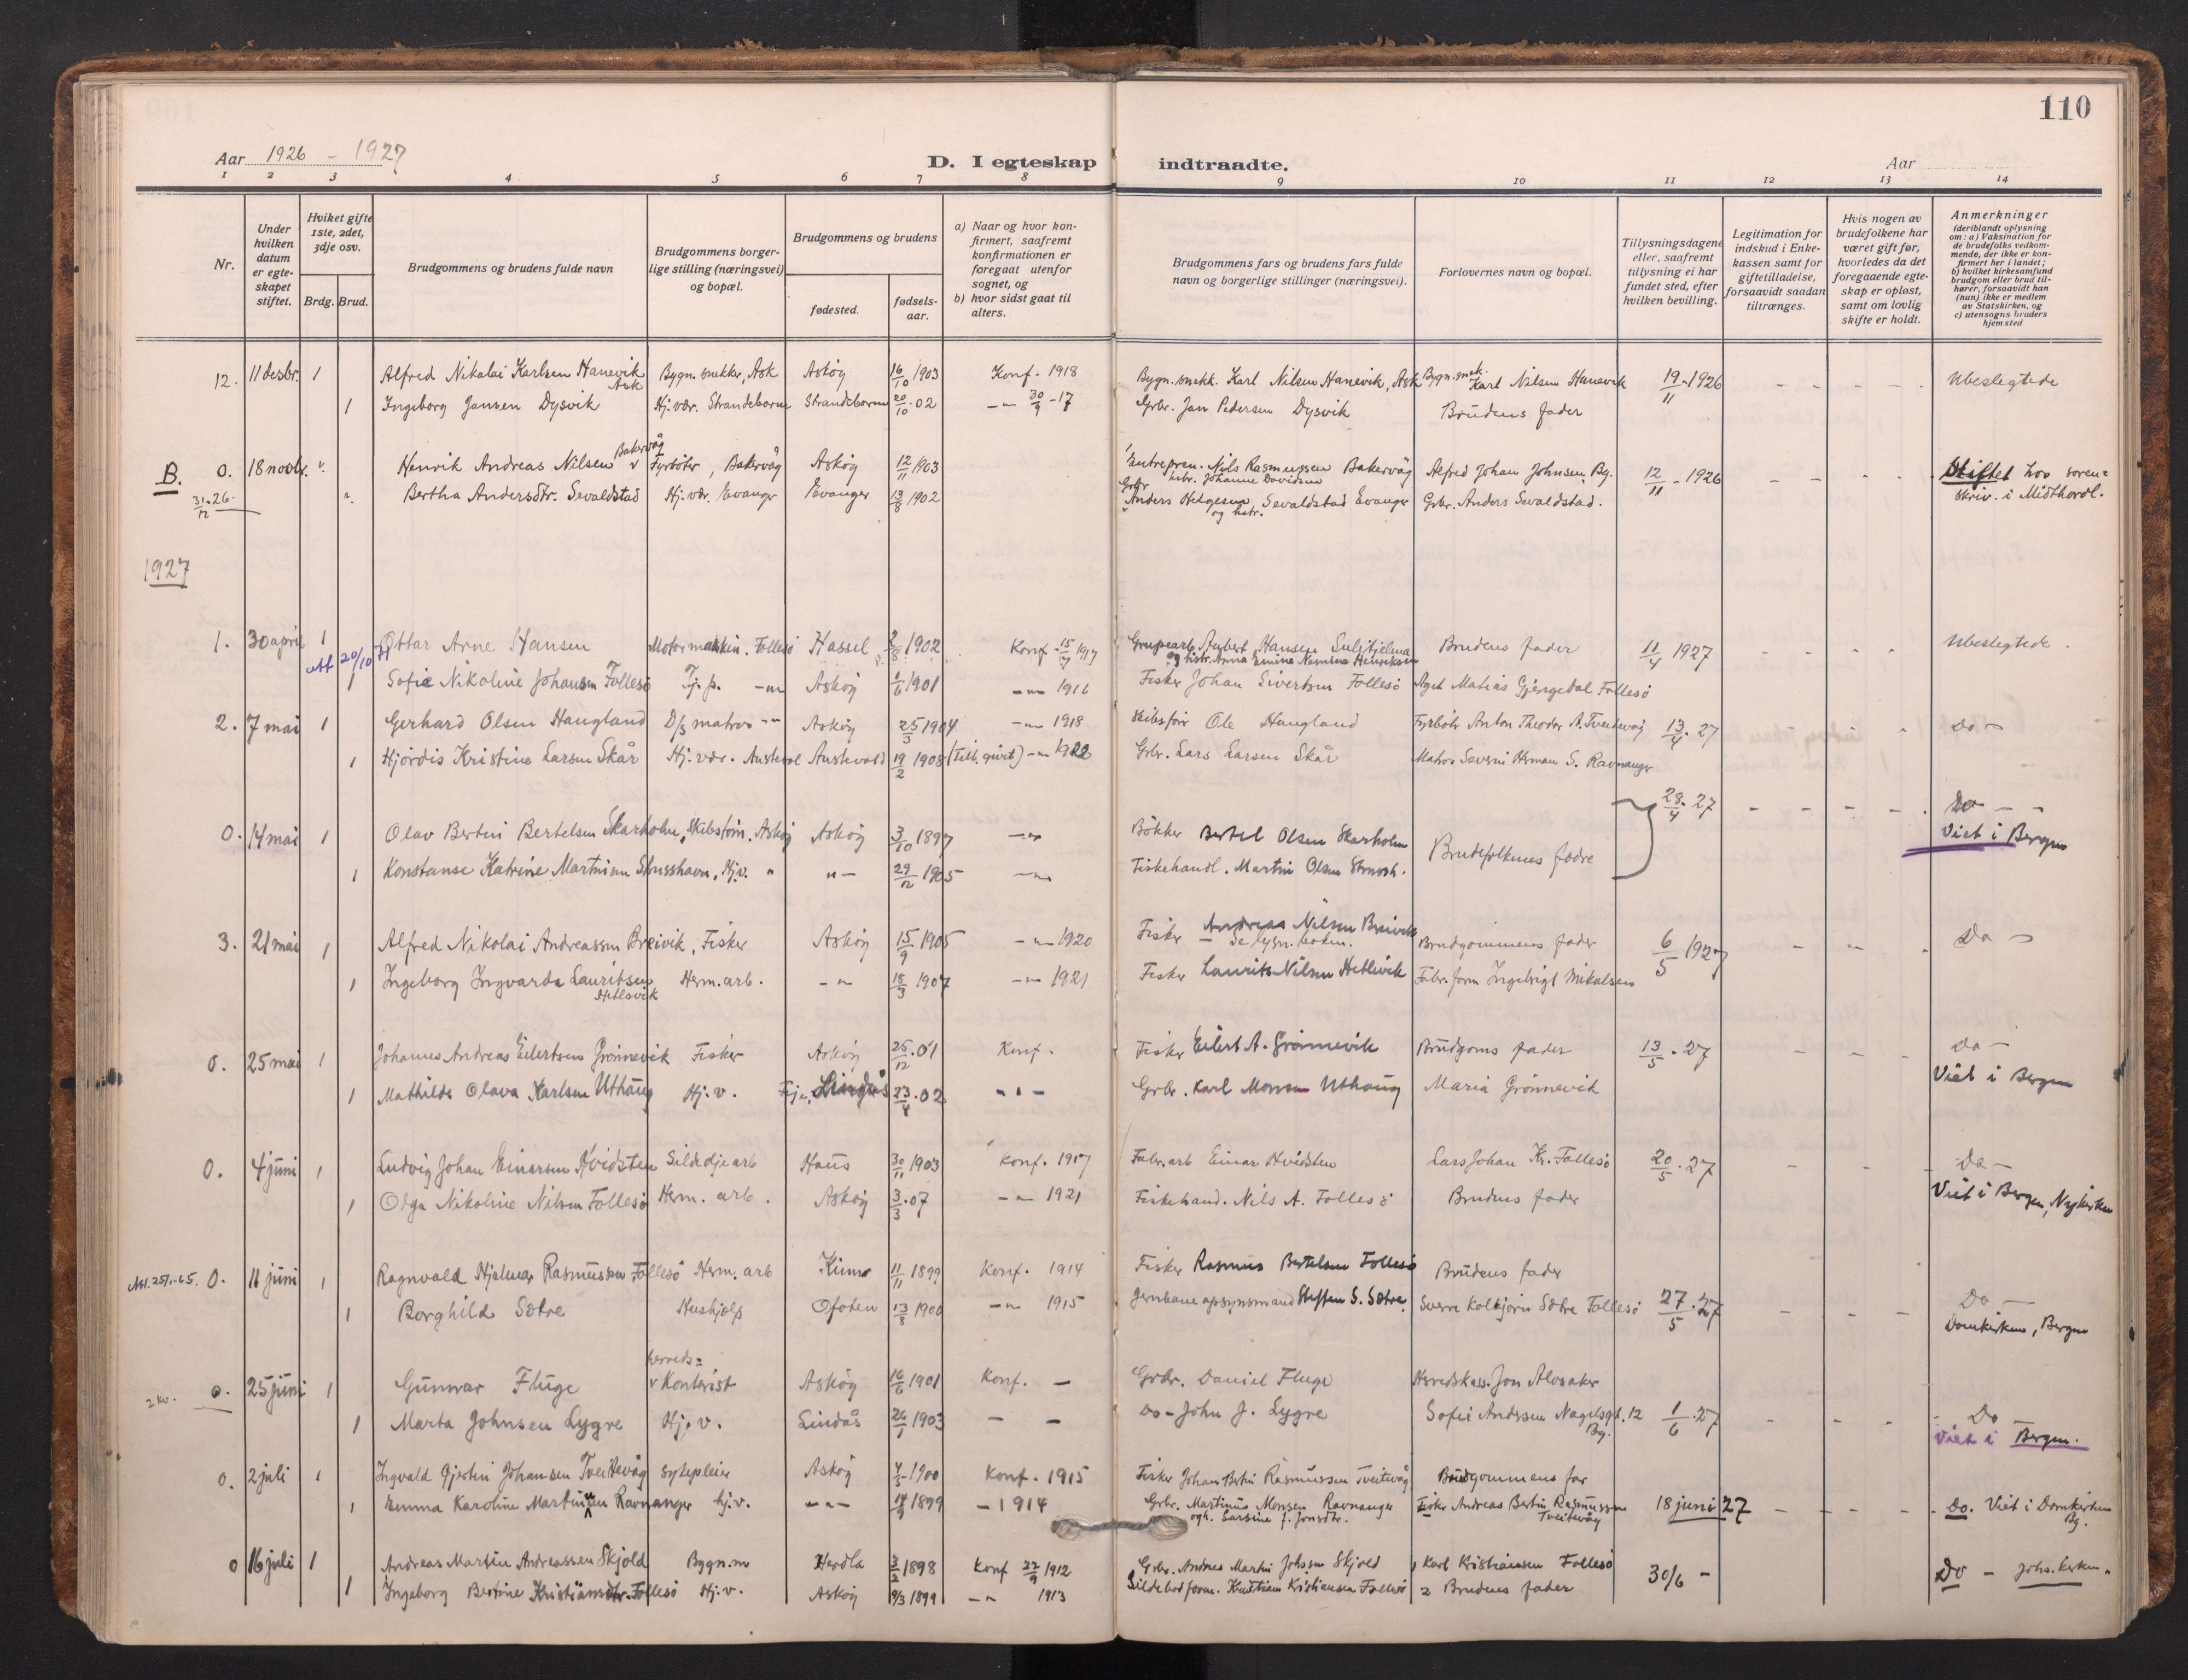 110
Aar 1926 - 1927
D. I egteskap indtraadte.
Aar
1 2 3 4 5 6 7 8 9 10 11 12 13 14
Nr.
Under hvilken datum er egteskapet stiftet.
Hviket gifte 1ste, 2det, 3dje osv.
Brdg. Brud.
Brudgommens og brudens fulde navn
Brudgommens borgerlige stilling (næringsvei) og bopæl.
Brudgommens og brudens
fødested.
fødselsaar.
a) Naar og hvor konfirmert, saafremt konfirmationen er foregaat utenfor sognet, og
b) hvor sidst gaat til alters.
Brudgommens fars og brudens fars fulde navn og borgerlige stillinger (næringsvei).
Forlovernes navn og bopæl.
Tillysningsdagene eller, saafremt tillysning ei har fundet sted, efter hvilken bevilling.
Legitimation for indskud i Enkekassen samt for giftetilladelse, forsaavidt saadan tiltrænges.
Hvis nogen av brudefolkene har været gift før, hvorledes da det foregaaende egteskap er opløst, samt om lovlig skifte er holdt.
Anmerkninger (deriblandt oplysning om: a) Vaksination for de brudefolks vedkommende, der ikke er konfirmert her i landet; b) hvilket kirkesamfund brudgom eller brud tilhører, forsaavidt han (hun) ikke er medlem av Statskirken, og c) utensogns bruders hjemsted
12. 11 desbr. 1 Alfred Nikolai Karlsen Hanevik Ask Bygn. snekker, Ask Askøy 16/10 1903 Konf. 1918 Bygn. snekk. Karl Nilsen Hanevik, Ask Bygn. snek. Karl Nilsen Hanevik 19/11 - 1926 - - - - Ubeslegtede
1 Ingeborg Jansen Dysvik Hj. vær. Strandebarm Strandebarm 20/10 02 -"- 30/9 - 17 Grbr. Jan Pedersen Dysvik Brudens fader
B. 0. 18 novbr. Henrik Andreas Nilsen Bakervåg Fyrbøter, Bakervåg Askøy 12/11 1903 Entrepren. Nils Rasmussen Bakervåg hstr. Johanne Davidsen Alfred Johan Johnsen, Bg. 12/11 - 1926 - - - - Stiftet hos sorenskriv. i Midthordl.
31/12 26. Bertha Andersdtr. Sevaldstad Hj. vær. Evanger Evanger 13/8 1902 Grbr Anders Helgesen Sevaldstad Evanger og hstr. Grbr. Anders Sevaldstad.
1927
1. 30 april 1 Ottar Arne Hansen Motormaskin. Follesø Hassel 2/8 1902 Konf. 15/7 1917 Grupearb. Aubert Hansen Sulitjelma og hstr. Anna Brudens fader 11/4 1927 - - - - Ubeslegtede
att 20/10
1 Sofie Nikoline Johansen Follesø Tj. p. -"- Askøy 1/6 1901 -"- 1916 Fisker Johan Sivertsen Follesø Agt Matias Gjengedal Follesø
2. 7 mai 1 Gerhard Olsen Haugland D/s matros -"- Askøy 25/3 1904 -"- 1918 Skibsfør Ole Haugland Fyrbøter Anton Theodor A. Tveitevåg 13/4 27 - - - - Do -
1 Hjørdis Kristine Larsen Skår Hj. vær. Austevol Austevold 19/2 1908 -"- 1922 Grbr. Lars Larsen Skår Matros Severin Herman S. Ravnanger
0. 14 mai 1 Olav Bertin Bertelsen Skarholm, Skibstøm. Askøy Askøy 3/10 1897 -"- Bøkker Bertel Olsen Skarholm Brudefolkenes fædre 28/4 27 - - - - Do - - Viet i Bergen
1 Konstanse Katrine Martinsen Strusshavn, Hj. v. " "- 29/12 1905 -"- Fiskehandl. Martin Olsen Strussh.
3. 21 mai 1 Alfred Nikolai Andreassen Breivik, Fisker Askøy 15/9 1905 -"- 1920 Fisker Andreas Nilsen Breivik Brudgommens fader 6/5 1927 - - - Do -
1 Ingeborg Ingvarda Lauritsen Hetlevik Herm. arb. -"- 18/3 1907 -"- 1921 Fisker Laurits Nilsen Hetlevik Fabr. form Ingebrigt Mikalsen
0. 25 mai 1 Johannes Andreas Eilertsens Grønnevik Fisker Askøy 25/12 01 Konf. Fisker Eilert A. Grønnevik Brudgoms fader 13/5 27 - - - Do - Viet i Bergen
1 Mathilde Olava Karlsen Uthaug Hj. v. Lindås 23/4 02 -"- Grbr. Karl Monsen Uthaug Maria Grønnevik
0. 4 juni 1 Ludvig Johan Einarsen Hvidsten Sildoljearb Haus 30/11 1903 Konf. 1917 Fabr. arb Einar Hvidsten Lars Johan Kr. Follesø 20/5 27 - - - Do - Viet i Bergen, Nykirken
1 Olga Nikoline Nilsen Follesø Herm. arb. Askøy 3/3 07 -"- 1921 Fiskehand. Nils A. Follesø Brudens fader
Att. 25/1-65. 0. 11 juni 1 Ragnvald Hjalmar Rasmussen Follesø Herm. arb Kinn 11/11 1899 Konf. 1914 Fisker Rasmus Bertelsen Follesø Brudens fader
1 Borghild Sætre Hushjelp Ofoten 13/8 1900 -"- 1915 Jernbaneopsynsmand Steffen S. Sætre. Sverre Kolbjørn Sætre Follesø 27/5 27 - - - Do - Domkirken, Bergen
2 kv. 0. 25 juni 1 Gunnar Fluge herreds= Kontorist Askøy 16/6 1901 Konf. - Grbr. Daniel Fluge Herredskass. Jon Alvsaker
1 Marta Johnsen Lygre Hj. v. Lindås 26/1 1903 - - Do - John J. Lygre Sofie Andersen Nagelsgt. 12 Bg. 1/6 27 - - - - Do Viet i Bergen.
0. 2 juli 1 Ingvald Gjertin Johansen Tveitevåg Sykepleier Askøy 4/5 1900 Konf. 1915 Fisker Johan Bertin Rasmussen Tveitevåg Brudgommens far
1 Emma Karoline Martinusen Ravnanger hj. v. -"- 14/9 1899 - 1914 Grbr. Martinus Monsen Ravnanger ogh. Larsine f. Jonsdtr. Fisker Andreas Bertin Rasmussen Tveitevåg 18 juni 27 - - - - Do. Viet i Domkirken Bg.
0 16 juli 1 Andreas Martin Andreassen Skjold Bygn. sn Herdla 3/2 1898 Konf 22/9 1912 Grbr. Andreas Martin Johssen Skjold 1 Karl Kristiansen Follesø 30/6 - Do - Johs. kirken.
1 Ingeborg Bertine Kristiansdtr. Follesø Hj. v. Askøy 9/3 1899 -"- 1913 Sildebodform. Kristian Kristiansen Follesø 2 Brudens fader